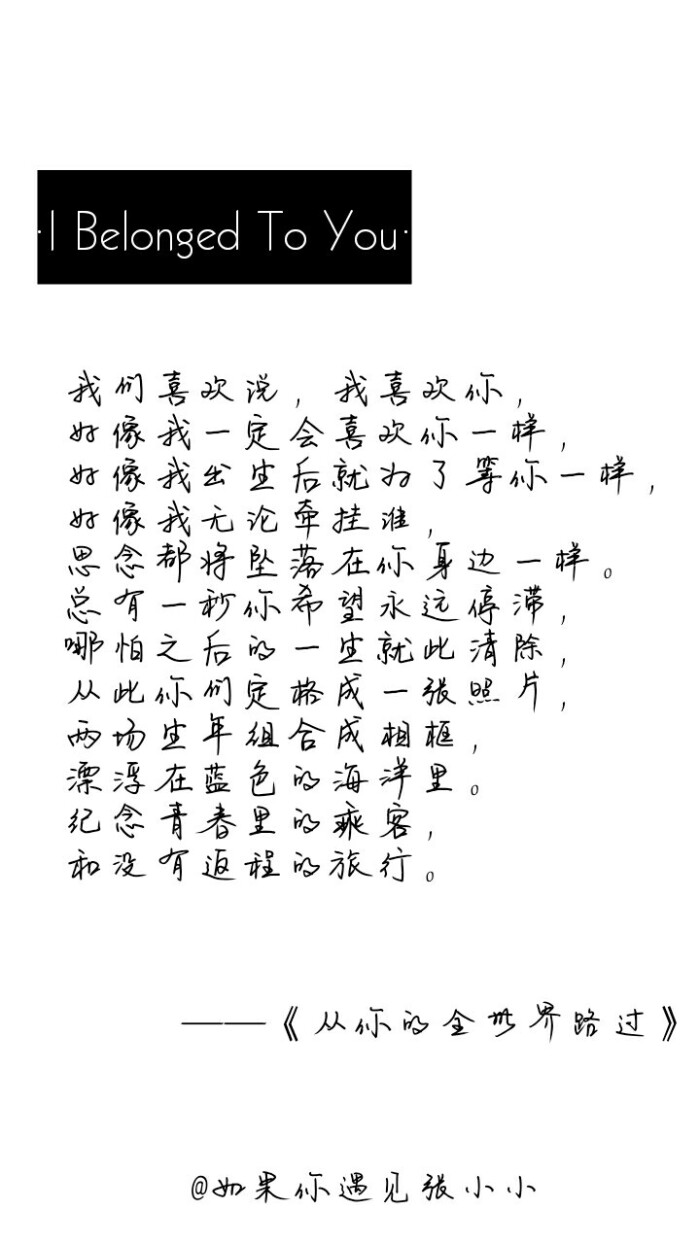 ·I Belonged To You·
我们喜欢说，我喜欢你，
好像我一定会喜欢你一样，
好像我出生后就为了等你一样，
好像我无论牵挂谁，
思念都将坠落在你身边一样。
总有一秒你希望永远停滞，
哪怕之后的一生就此清除，
从此你们定格成一张照片，
两场生年组合成相框，
漂浮在蓝色的海洋里。
纪念青春里的乘客，
和没有返程的旅行。
——《从你的全世界路过》
@如果你遇见张小小